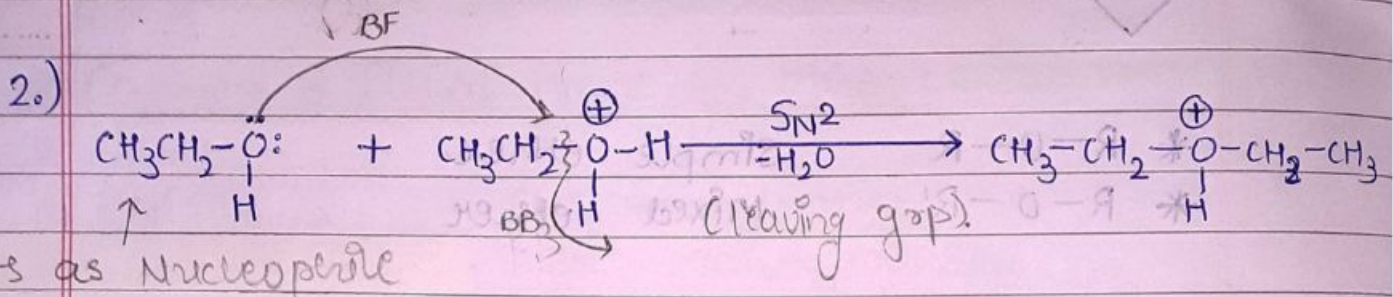 BF
2.) CH₃CH₂-Ö: + CH₃CH₂-O-H SN2 → CH₃-CH₂-O-CH₂-CH₃
⊕ ⊕
-H₂O
H BB H (leaving grp). H
↑
s as Nucleophile